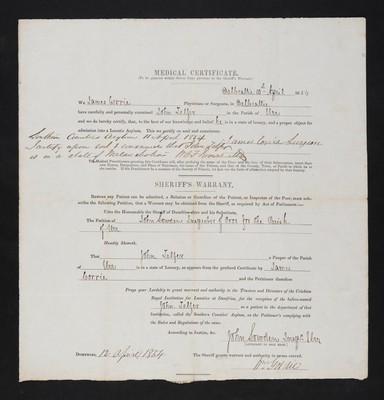 MEDICAL CERTIFICATE.
Dalbeattie 10th April 1854
We James Corrie Physicians or Surgeons, in Dalbeattie
have carefully and personally examined John Telfer in the Parish of Urr
and we do hereby certify, that, to the best of our knowledge and belief he is in a state of lunacy, and a proper object for
admission into a Lunatic Asylum. This we certify on soul and conscience.
Southern Counties Asylum 11 April 1854 James Corrie Surgeon
I certify upon soul & conscience that John Telfer
is in a state of Melancholia
SHERIFF'S WARRANT.
Before any Patient can be admitted, a Relation or Guardian of the Patient, or Inspector of the Poor, must subscribe the following Petition, that a Warrant may be obtained from the Sheriff, as required by Act of Parliament:—
Unto the Honourable the Sheriff of Dumfries-shire and his Substitutes,
The Petition of John Lowden Inspector of Poor for the Parish
of Urr
Humbly Sheweth,
That John Telfer a Pauper of the Parish
of Urr is in a state of lunacy, as appears from the prefixed Certificate by James
Corrie and the Petitioner therefore
Prays your Lordship to grant warrant and authority to the Trustees and Directors of the Crichton
Royal Institution for Lunatics at Dumfries, for the reception of the before-named
John Telfer as a patient in the department of that
Institution, called the Southern Counties' Asylum, on the Petitioner's complying with
the Rules and Regulations of the same.
According to Justice, &c.
John Lowden Inspr. Urr
Dumfries, 12 April 1854 The Sheriff grants warrant and authority as prayed.